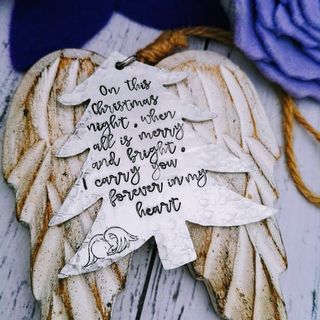 On this
Christmas
night, when
all is merry
and bright,
I carry you
forever in my
heart